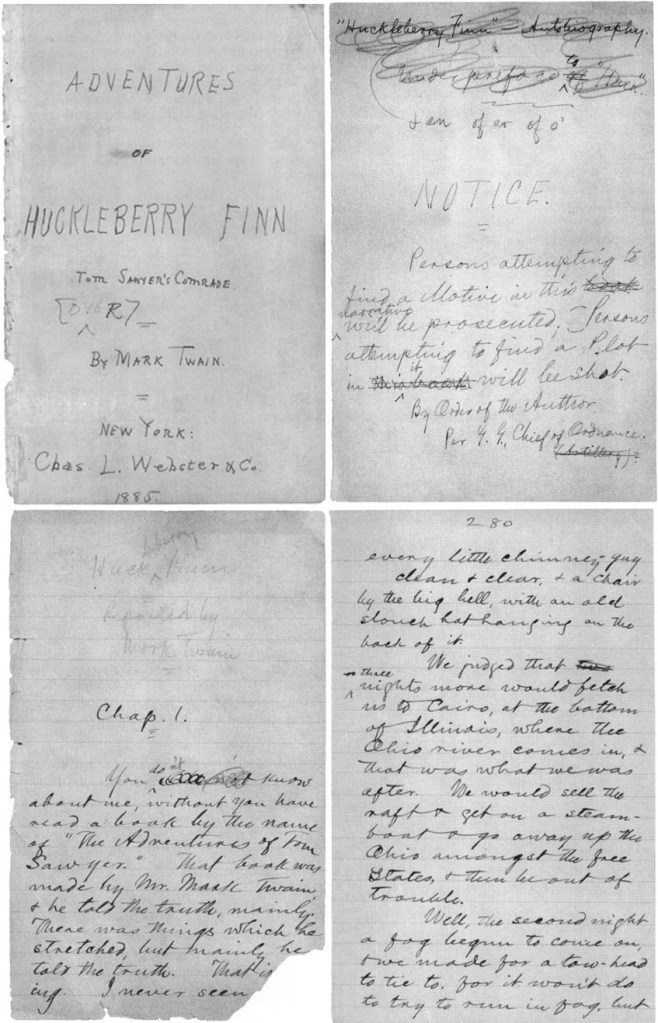 ADVENTURES
OF
HUCKLEBERRY FINN
TOM SAWYER'S COMRADE.
[OVER]
BY MARK TWAIN.
NEW YORK:
Chas. L. Webster & Co.
1885.
"Huckleberry Finn" — Autobiography.
Under preface to "Huck".
NOTICE.
Persons attempting to
find a Motive in this book
narrative
will be prosecuted; Persons
attempting to find a Plot
in this book it will be shot.
By Order of the Author
Per G. G., Chief of Ordnance.
(Artillery)?
Huck Finn
Reported by
Mark Twain
Chap. 1.
You don't know
about me, without you have
read a book by the name
of "The Adventures of Tom
Sawyer." That book was
made by Mr. Mark Twain,
& he told the truth, mainly.
There was things which he
stretched, but mainly he
told the truth. That is
ing. I never seen
280
every little chimney-guy
clean & clear, & a chair
by the big bell, with an old
slouch hat hanging on the
back of it.
We judged that two
three
nights more would fetch
us to Cairo, at the bottom
of Illinois, where the
Ohio river comes in, &
that was what we was
after. We would sell the
raft & get on a steam-
boat & go away up the
Ohio amongst the free
States, & then be out of
trouble.
Well, the second night
a fog begun to come on,
& we made for a tow-head
to tie to, for it won't do
to try to run in fog, but